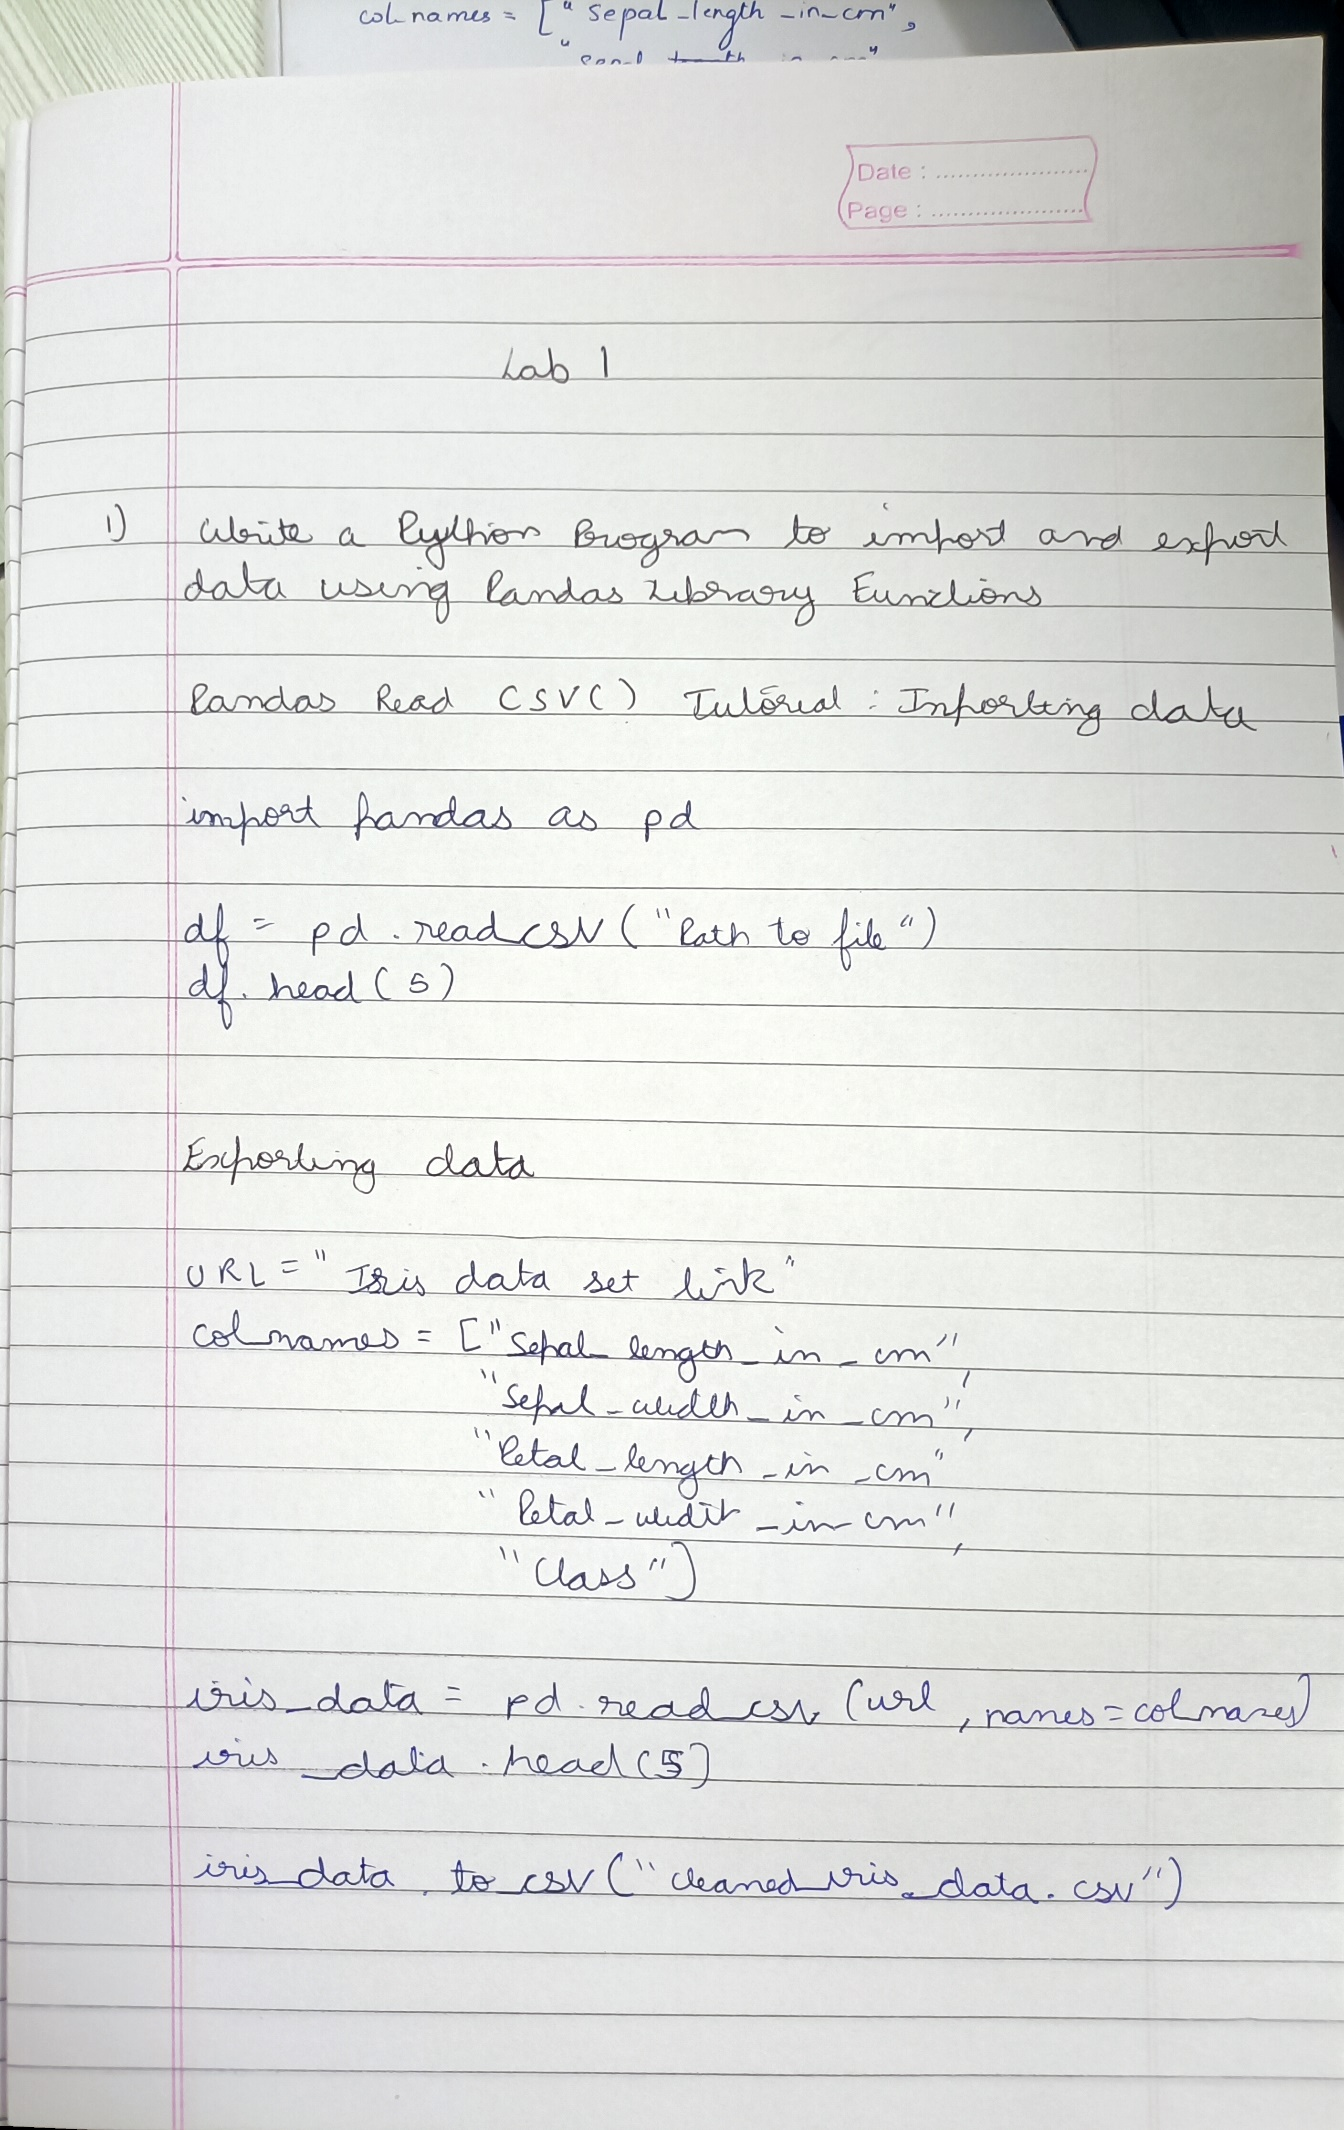 col_names = ["sepal_length_in_cm",
Date :
Page :
Lab 1
1) Write a Python Program to import and export
data using Pandas Library Functions
Pandas Read CSV() Tutorial : Importing data
import pandas as pd
df = pd.read_csv("Path to file")
df.head(5)
Exporting data
URL = "Iris data set link"
col_names = ["Sepal_length_in_cm",
"Sepal_width_in_cm",
"Petal_length_in_cm"
"Petal_widt_in_cm",
"Class"]
iris_data = pd.read_csv(url, names=col_names)
iris_data.head(5)
iris_data.to_csv("cleaned_iris_data.csv")